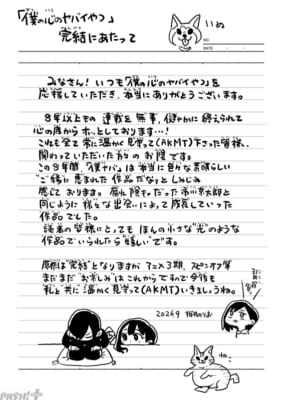 「僕の心のヤバイやつ」
完結にあたって
いぬ
NO.
DATE
みなさん!いつも「僕の心のヤバイやつ」を
応援していただき、本当にありがとうございます。
8年以上もの連載を無事、健やかに終えられて
心の底からホッとしております…!
これも全て常に温かく見守って(AKMT)下さった皆様、
関わっていただいた方々のお陰です。
この8年間、「僕ヤバ」は本当に色々な素晴らしい
"ご縁"に恵まれた作品だな〜としみじみ
感じております。根暗陰キャだった市川京太郎と
同じように様々な出会いによって成長していった
作品でした。
読者の皆様にとってもほんの小さな"光"のような
作品でいられたら"嬉しい"です。
原作は"完結"となりますがアニメ3期、スピンオフ等
まだまだ"お楽しみ"はこれからですので今後も
私と共に温かく見守って(AKMT)いきましょうね。
2026.9 桜井のりお
ね
PASH!+